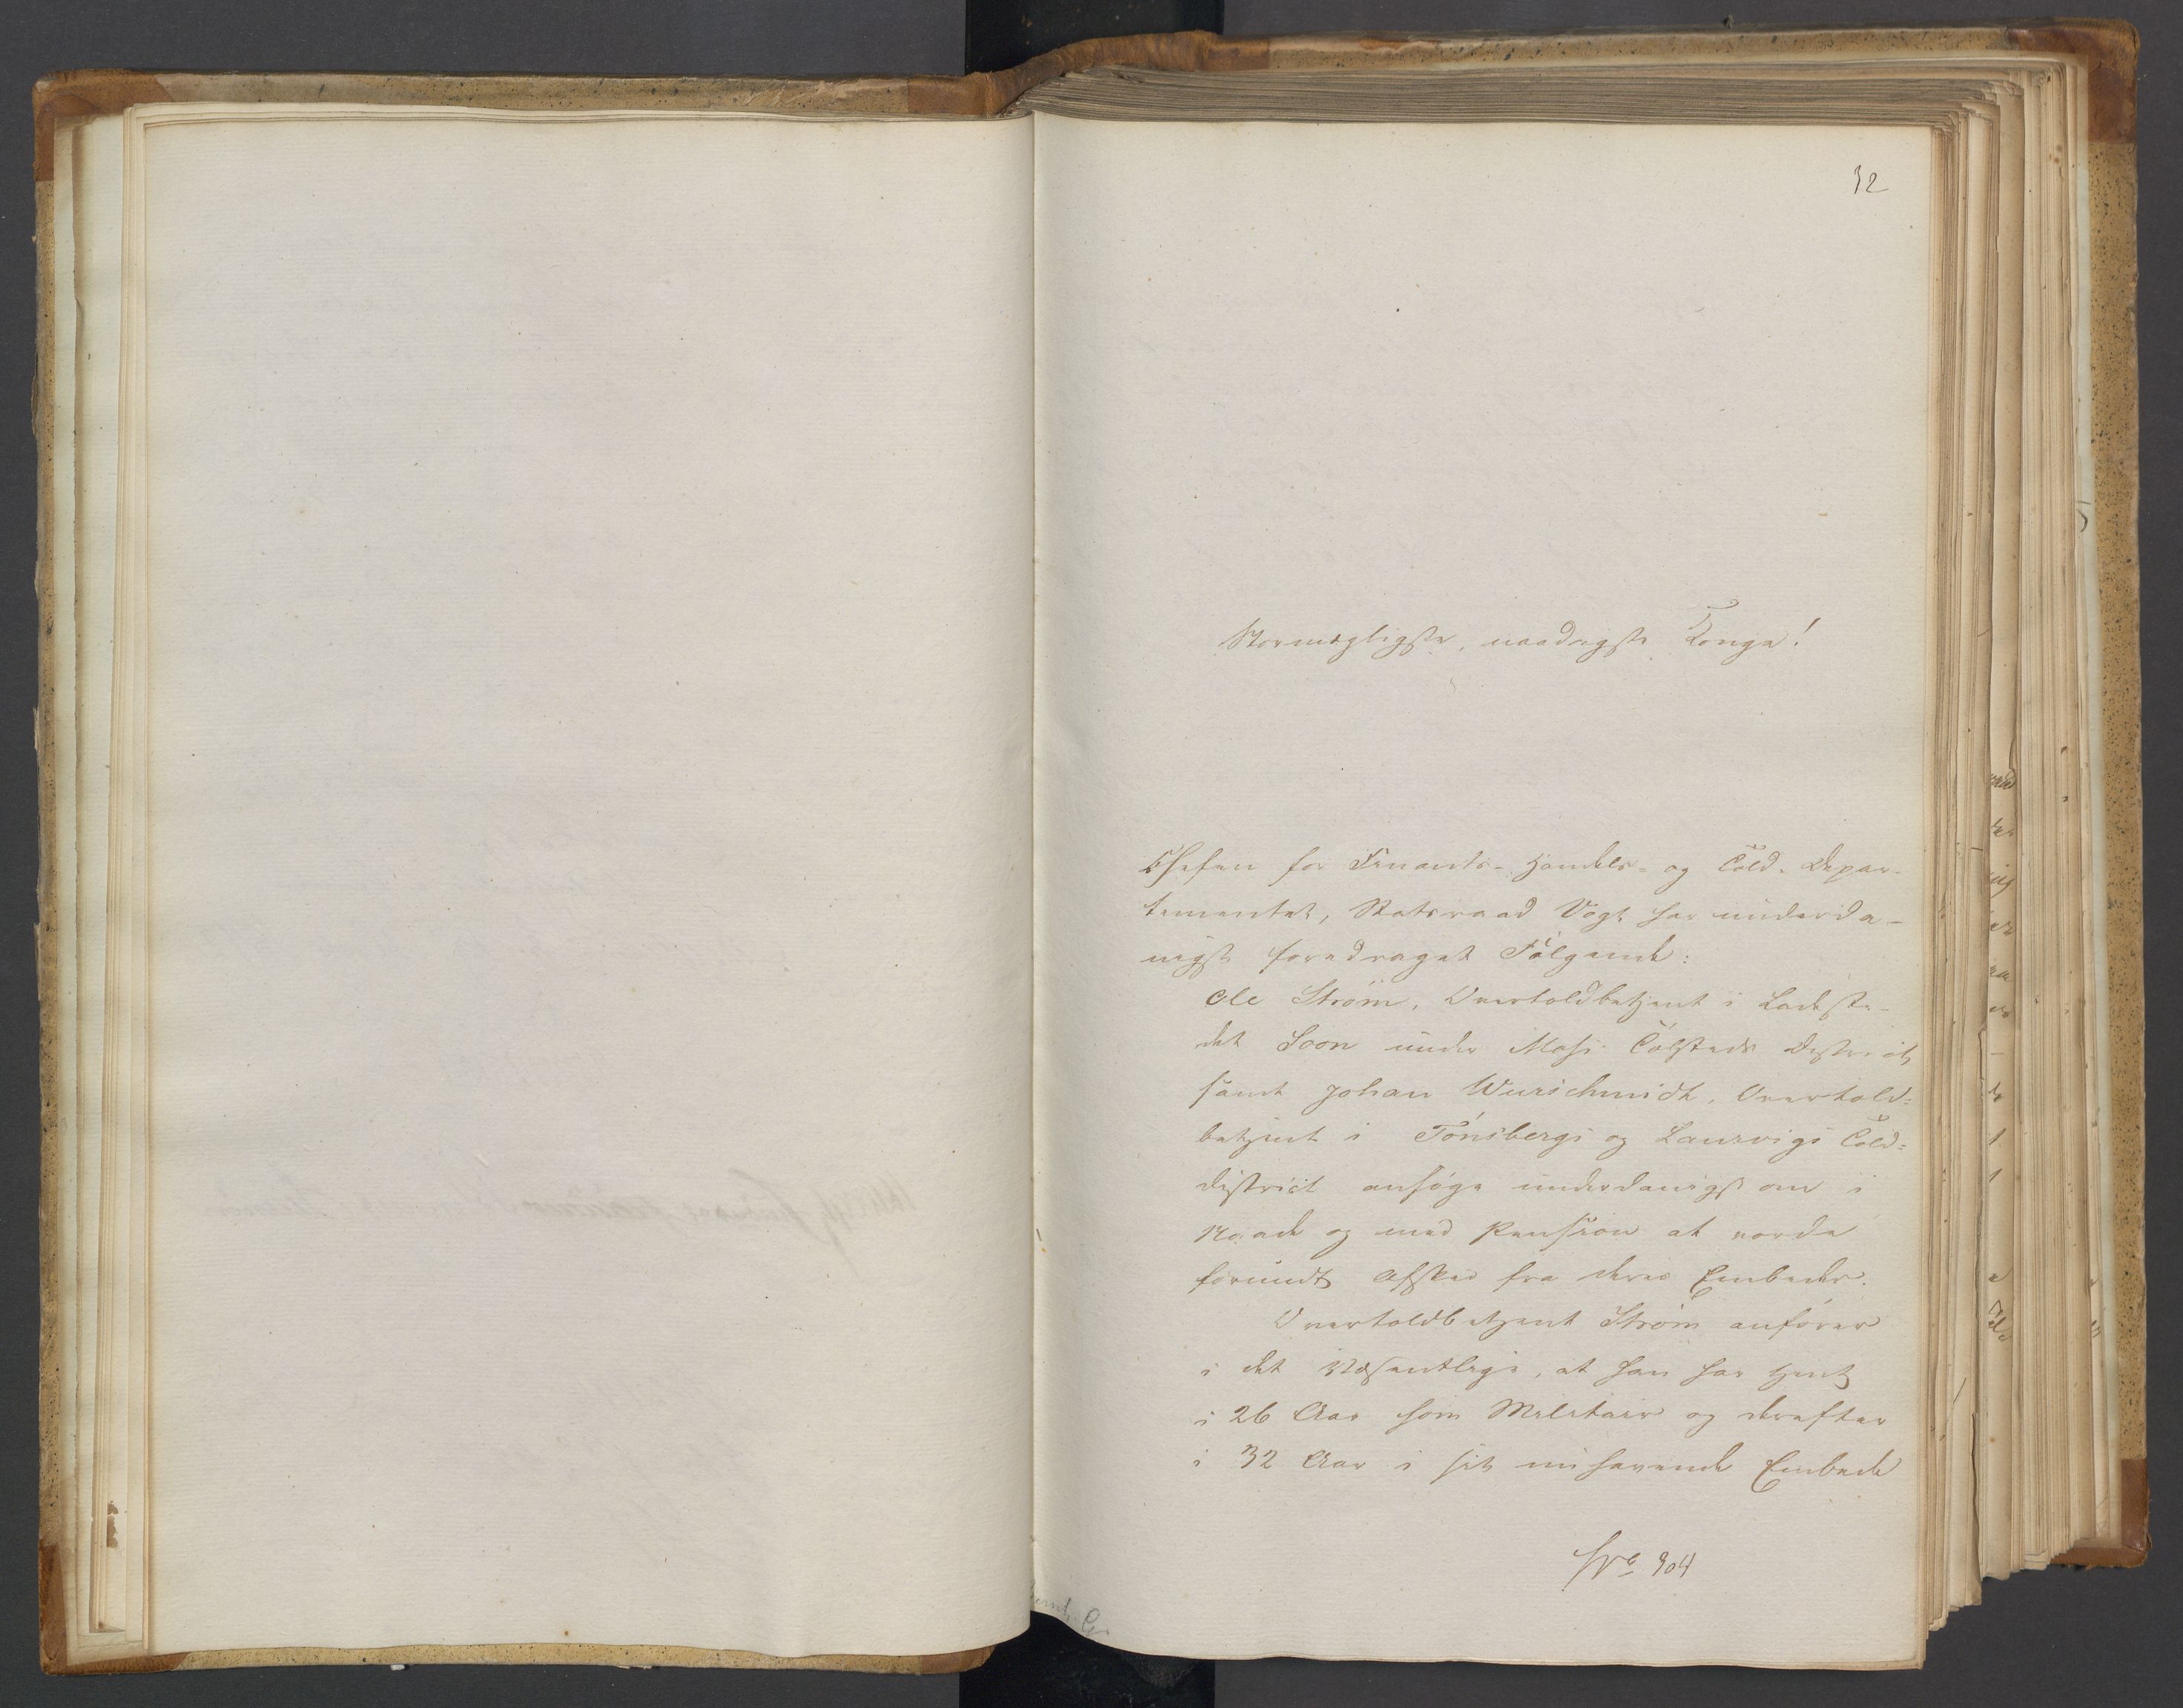 32
Stormægtigste, naadigste Konge!
Chefen for Finants- Handels- og Told-Depar-
tementet, Statsraad Vogt har underda-
nigst foredraget Følgende:
Ole Strøm, Overtoldbetjent i Ladeste-
det Soon under Moss Toldsteds District,
samt Johan Wurschmidt, Overtold-
betjent i Tønsbergs og Laurvigs Told-
district ansøge underdanigst om i
Naade og med Pension at vorde
forundt Afsked fra deres Embeder.
Overtoldbetjent Strøm anfører
i det Væsentlige, at han har tjent
i 26 Aar som Militair og derefter
i 32 Aar i sit nu havende Embede
No 904